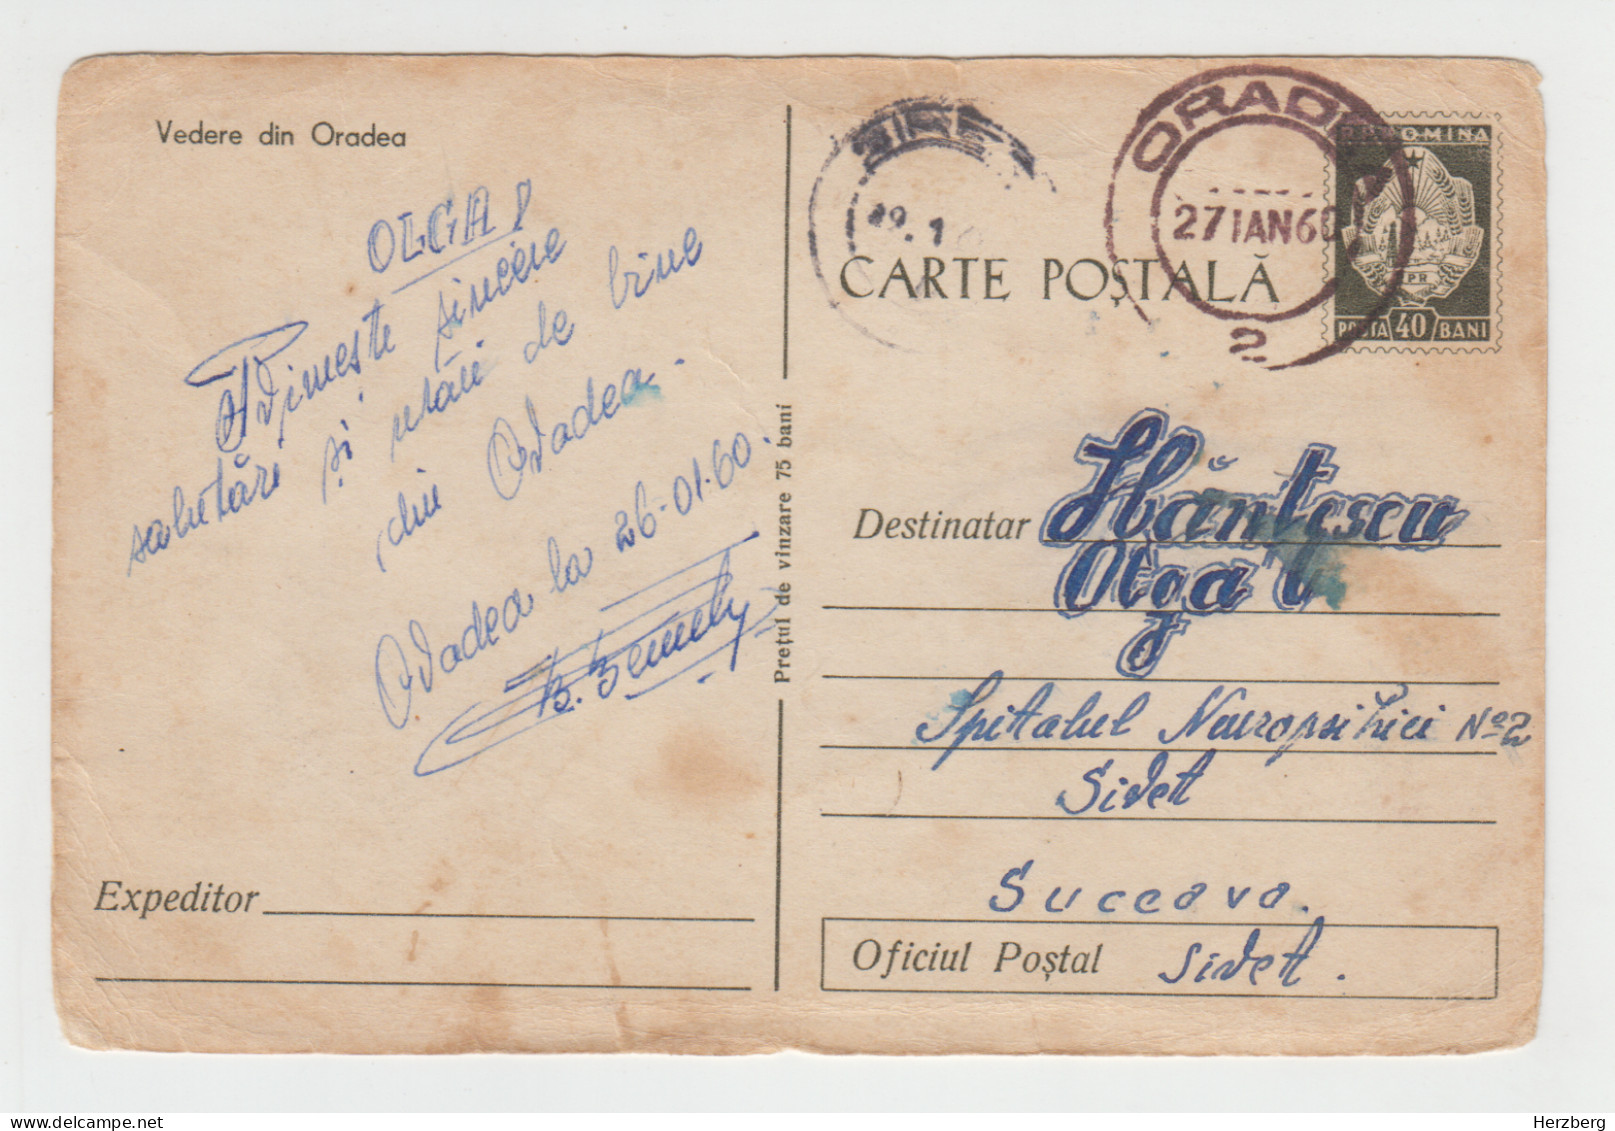 Vedere din Oradea
OLGA!
Primește sincere
salutări și urări de bine
din Oradea.
Oradea la 26-01-60.
Prețul de vinzare 75 bani
Expeditor
SIRET
29.1
ORADEA
27 IAN 60
2
R.P. ROMINA
RPR
POSTA 40 BANI
CARTE POȘTALĂ
Destinatar
Olga
Spitalul Neuropsihici No 2
Siret
Suceava.
Oficiul Poștal Siret.
Herzberg